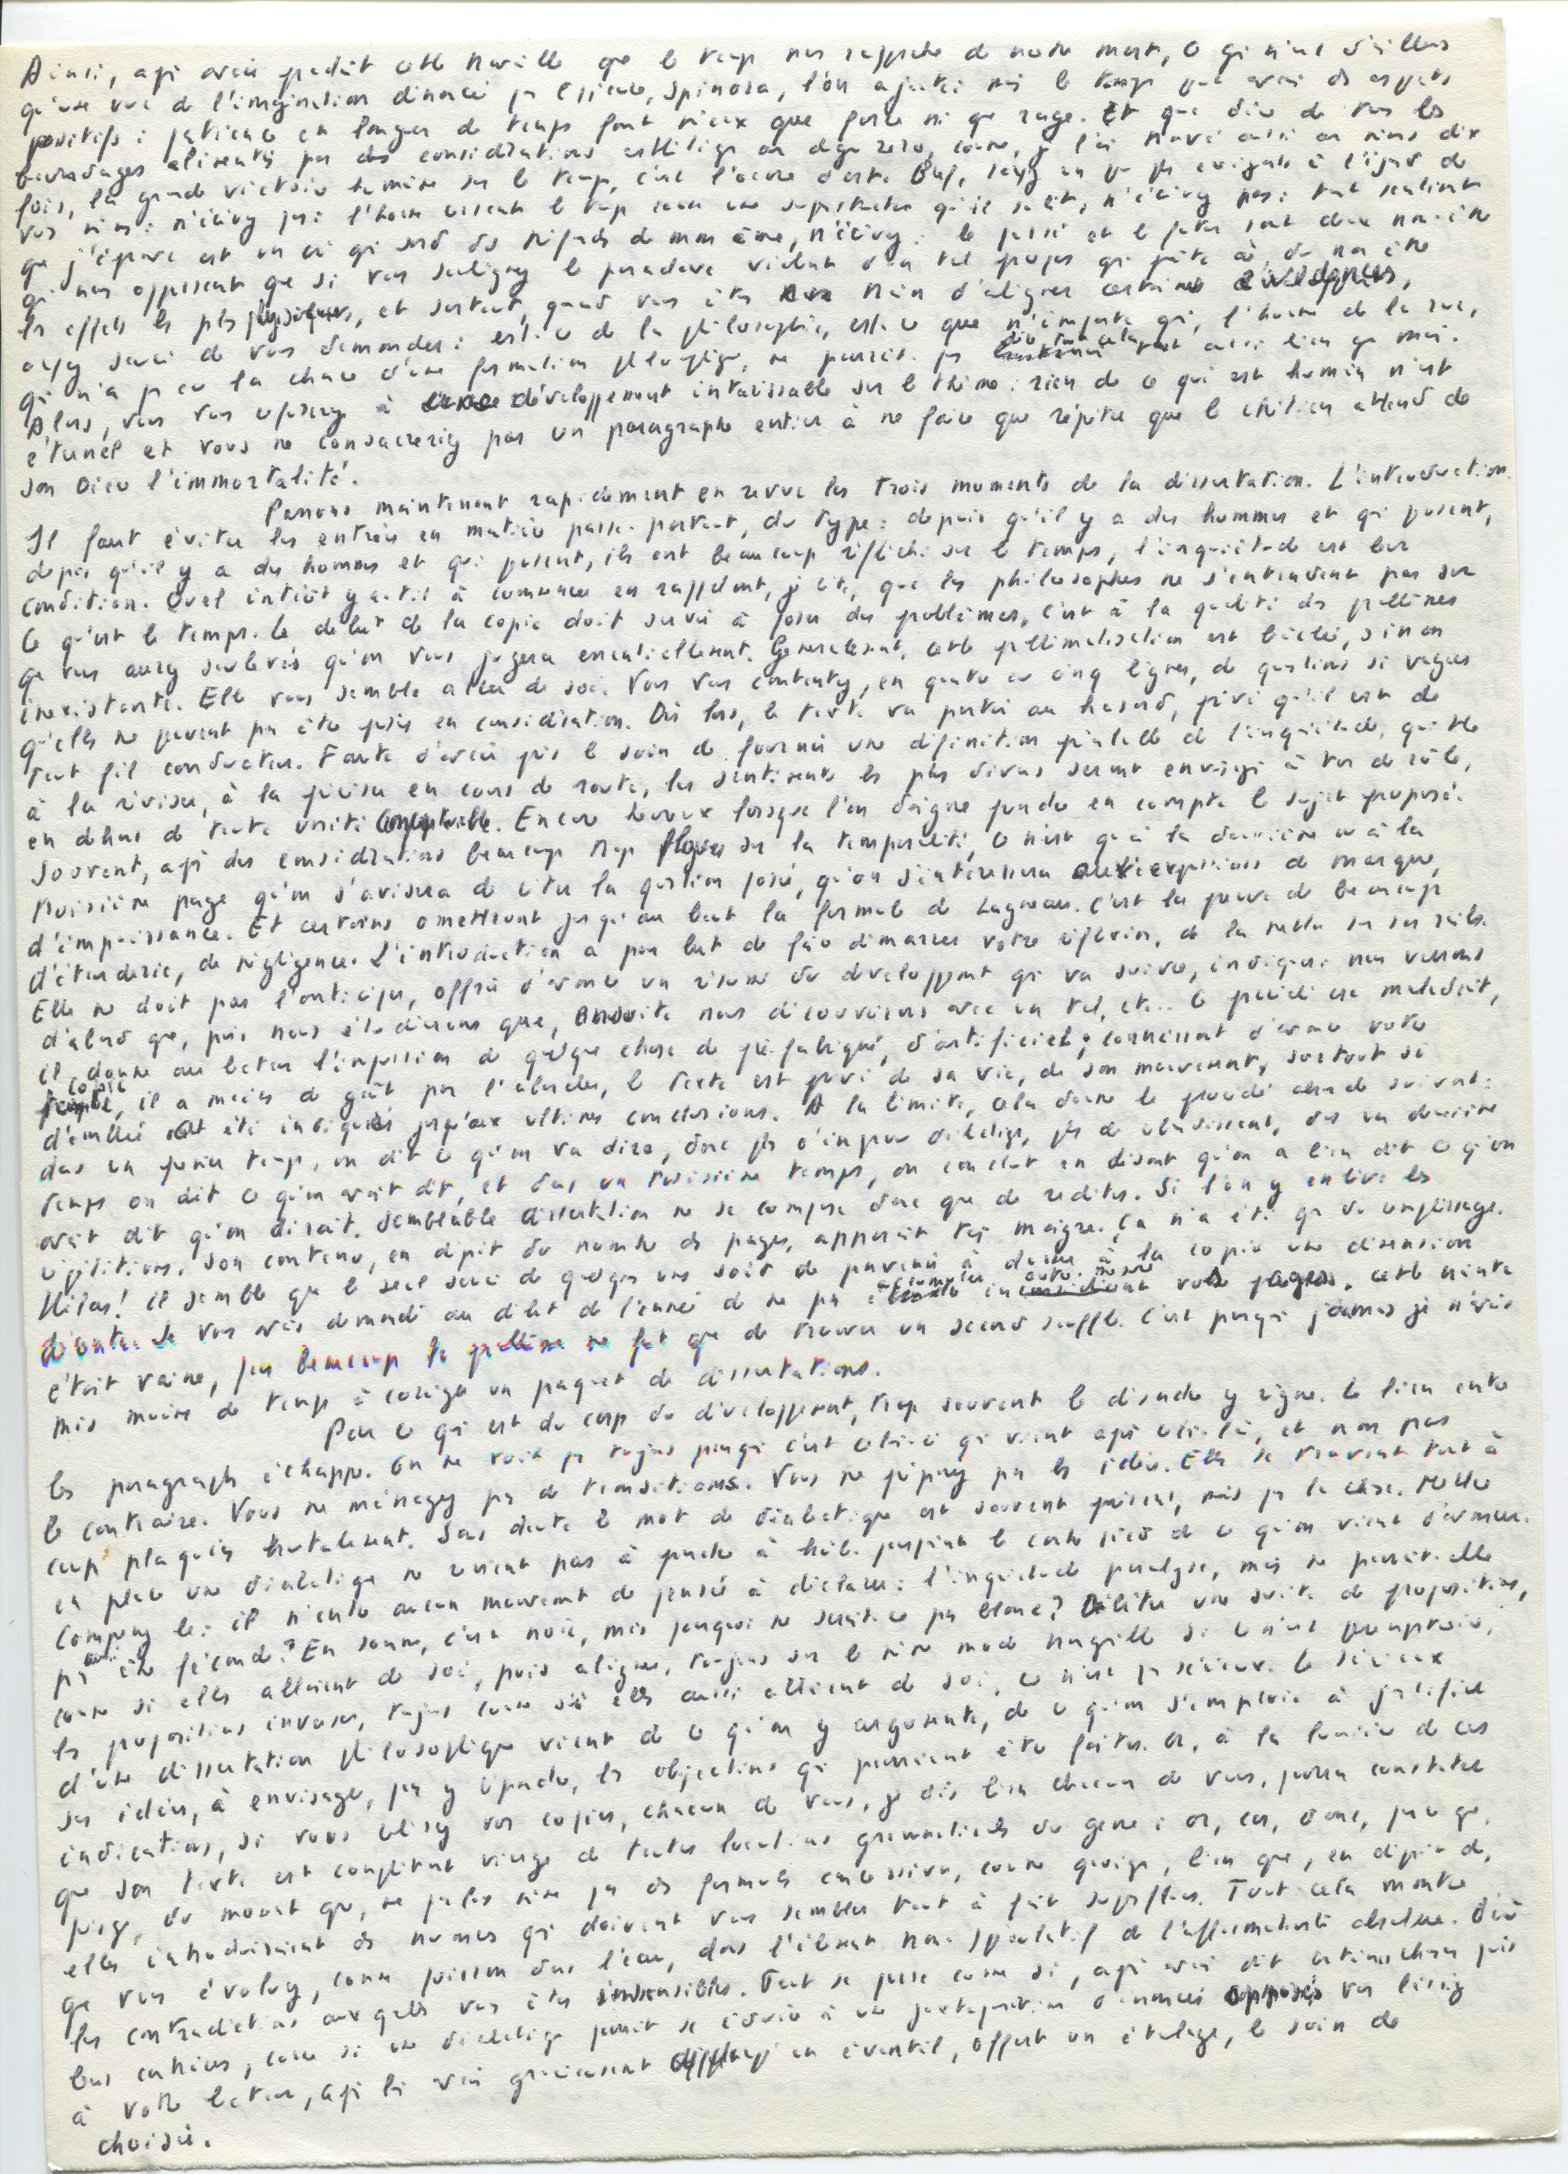 Ainsi, après avoir prédit cette nouvelle que le temps nous rapproche de notre mort, ce qui n'est d'ailleurs
qu'une vue de l'imagination dénoncée par Epicure, Spinoza, l'on ajoutait mais le temps peut avoir des aspects
positifs : patience et longueur de temps font mieux que force ni que rage. Et que dire de tous les
bavardages alimentés par des considérations esthétiques au degré zéro, comme, je l'ai trouvé aussi au moins dix
fois, la grande victoire humaine sur le temps, c'est l'oeuvre d'art. Bref, soyez un peu plus exigeants à l'égard de
vous-mêmes : n'écrivez pas : l'homme ressent le temps comme une qu'il subit, n'écrivez pas : tout sentiment
que j'éprouve est un cri qui sort des tréfonds de mon âme, n'écrivez : le passé et le futur sont deux non-être
qui nous oppressent que si vous soulignez le paradoxe violent d'un tel propos qui prête à du non être
les effets les plus physiques, et surtout, quand vous êtes en train d'aligner certaines évidences,
ayez souci de vous demander : est-ce de la philosophie, est-ce que n'importe qui, l'homme de la rue,
qui n'a pas eu la chance d'une formation philosophique, ne pourrait pas dire tout cela tout aussi bien que moi.
Alors, vous vous refuserez à développement intarissable sur le thème : rien de ce qui est humain n'est
éternel et vous ne consacrerez pas un paragraphe entier à ne faire que répéter que le chrétien attend de
son Dieu l'immortalité.
Passons maintenant rapidement en revue les trois moments de la dissertation. L'introduction.
Il faut éviter les entrées en matière passe-partout, du type : depuis qu'il y a des hommes et qui pensent,
depuis qu'il y a des hommes et qui pensent, ils ont beaucoup réfléchi sur le temps, l'inquiétude est leur
condition. Quel intérêt y a-t-il à commencer en rappelant, je cite, que les philosophes ne s'entendent pas sur
ce qu'est le temps. Le début de la copie doit servir à poser des problèmes, c'est à la qualité des problèmes
que vous aurez soulevés qu'on vous jugera essentiellement. Généralement, cette problématisation est bâclée, sinon
inexistante. Elle vous semble aller de soi. Vous vous contentez, en quatre ou cinq lignes, de questions si vagues
qu'elles ne peuvent pas être prises en considération. Dès lors, le texte va partir au hasard, privé qu'il est de
tout fil conducteur. Faute d'avoir pris le soin de fournir une définition préalable de l'inquiétude, quitte
à la réviser, à la préciser en cours de route, les sentiments les plus divers seront envisagés à tour de rôle,
en dehors de toute unité conceptuelle. Encore heureux lorsque l'on daigne prendre en compte le sujet proposé.
Souvent, après des considérations beaucoup trop floues sur la temporalité, ce n'est qu'à la deuxième ou à la
troisième page qu'on s'avisera de citer la question posée, qu'on s'intéressera aux expressions de marque,
d'impuissance. Et certains omettront jusqu'au bout la formule de Lagneau. C'est la preuve de beaucoup
d'étourderie, de négligence. L'introduction a pour but de faire démarrer votre réflexion, de la mettre sur ses rails.
Elle ne doit pas l'anticiper, offrir d'avance un résumé du développement qui va suivre, indiquer : nous verrons
d'abord que, puis nous étudierons que, ensuite nous découvrirons avec un tel, etc... Ce procédé est maladroit,
il donne au lecteur l'impression de quelque chose de préfabriqué, d'artificiel ; connaissant d'avance votre
copie, il a moins de goût pour l'aborder, le texte est privé de sa vie, de son mouvement, surtout si
d'emblée ont été indiquées jusqu'aux ultimes conclusions. A la limite, cela donne le procédé absurde suivant :
dans un premier temps, on dit ce qu'on va dire, donc plus d'imprévu dialectique, plus de rebondissement, dans un deuxième
temps on dit ce qu'on avait dit, et dans un troisième temps, on conclut en disant qu'on a bien dit ce qu'on
avait dit qu'on dirait. Semblable dissertation ne se compose donc que de redites. Si l'on y enlève les
répétitions, son contenu, en dépit du nombre de pages, apparaît très maigre. Ça n'a été que du remplissage.
Hélas ! il semble que le seul souci de quelques uns soit de parvenir à donner à la copie une dimension
décente. Je vous avais demandé au début de l'année de ne pas accumuler outre mesure vos pages. Cette crainte
était vaine, pour beaucoup le problème ne fut que de trouver un second souffle. C'est pourquoi jamais je n'avais
mis moins de temps à corriger un paquet de dissertations.
Pour ce qui est du corps du développement, trop souvent le désordre y règne. Le lien entre
les paragraphes échappe. On ne voit pas toujours pourquoi c'est celui-ci qui vient après celui-là, et non pas
le contraire. Vous ne ménagez pas de transitions. Vous ne préparez pas les idées. Elles se trouvent tout à
coup plaquées brutalement. Sans doute le mot de dialectique est souvent présent, mais pas la chose. Mettre
en place une dialectique ne revient pas à prendre à brûle-pourpoint le contre pied de ce qu'on vient d'avancer.
Comprenez-le : il n'entre aucun mouvement de pensée à déclarer : l'inquiétude paralyse, mais ne pourrait-elle
pas aussi être féconde ? En somme, c'est noir, mais pourquoi ne serait-ce pas blanc ? Débiter une suite de propositions,
comme si elles allaient de soi, puis aligner, toujours sur le même mode tranquille si ce n'est péremptoire,
les propositions inverses, toujours comme si elles aussi allaient de soi, ce n'est pas sérieux. Le sérieux
d'une dissertation philosophique vient de ce qu'on y argumente, de ce qu'on s'emploie à justifier
ses idées, à envisager, pour y répondre, les objections qui pourraient être faites. Or, à la lumière de ces
indications, si vous relisez vos copies, chacun de vous, je dis bien chacun de vous, pourra constater
que son texte est complètement vierge de toutes locutions grammaticales du genre : or, car, donc, parce que,
puisque, du moment que, ne parlons même pas des formules concessives, comme quoique, bien que, en dépit de,
elles introduisaient des nuances qui doivent vous sembler tout à fait superflues. Tout cela montre
que vous évoluez, comme poisson dans l'eau, dans l'élément non-spéculatif de l'affirmativité absolue. D'où
les contradictions auxquelles vous êtes insensibles. Tout se passe comme si, après avoir dit certaines choses puis
leurs contraires, comme si une dialectique pouvait se réduire à une juxtaposition d'énoncés opposés, vous laissiez
à votre lecteur, après lui avoir gracieusement en éventail, offert un étalage, le soin de
choisir.